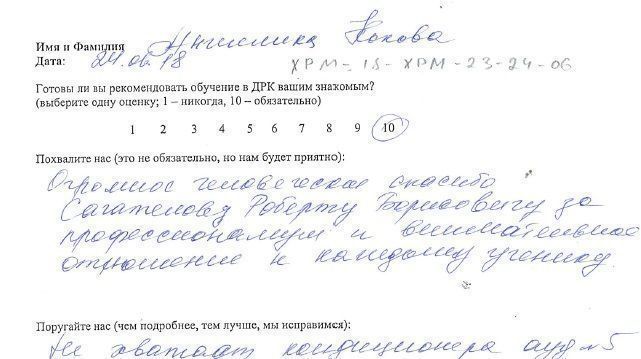 Имя и Фамилия Анжелика Кокова
Дата: 24.06.18 ХРМ-15-ХРМ-23-24-06
Готовы ли вы рекомендовать обучение в ДРК вашим знакомым?
(выберите одну оценку; 1 – никогда, 10 – обязательно)
1 2 3 4 5 6 7 8 9 10
Похвалите нас (это не обязательно, но нам будет приятно):
Огромное человеческое спасибо
Сагателову Роберту Борисовичу за
профессионализм и внимательное
отношение к каждому ученику.
Поругайте нас (чем подробнее, тем лучше, мы исправимся):
Не хватает кондиционера ауд №5